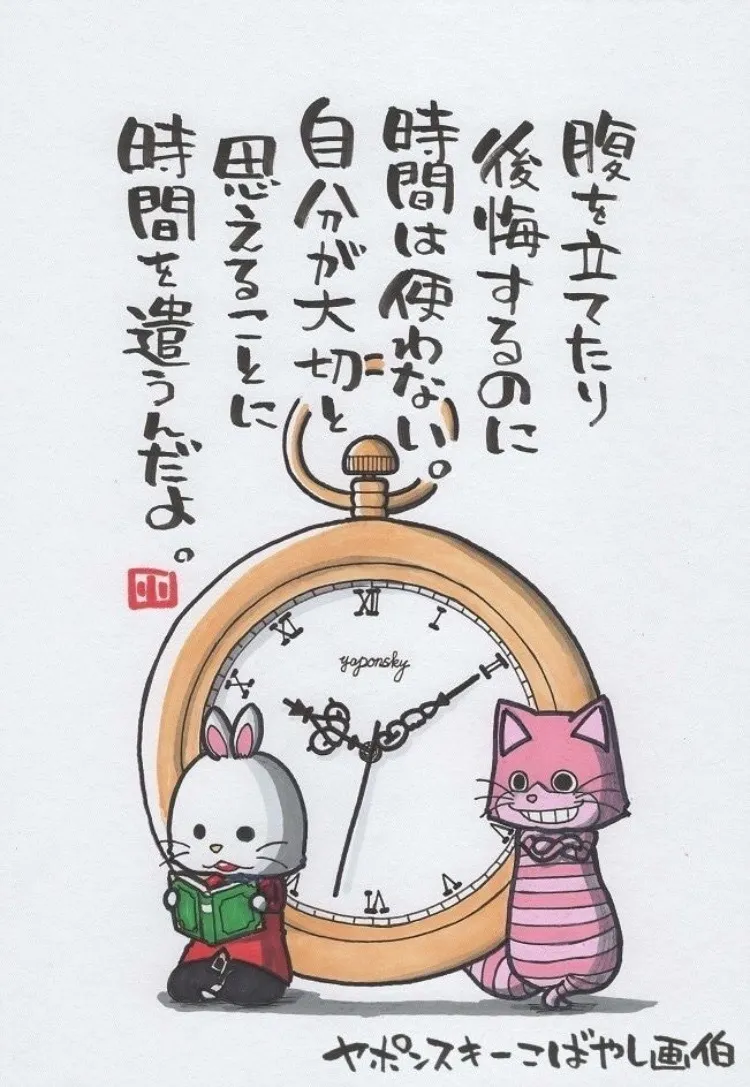 腹を立てたり
後悔するのに
時間は使わない。
自分が大切と
思えることに
時間を遣うんだよ。
XII
I
II
V
VI
X
XI
yaponsky
ヤポンスキーこばやし画伯